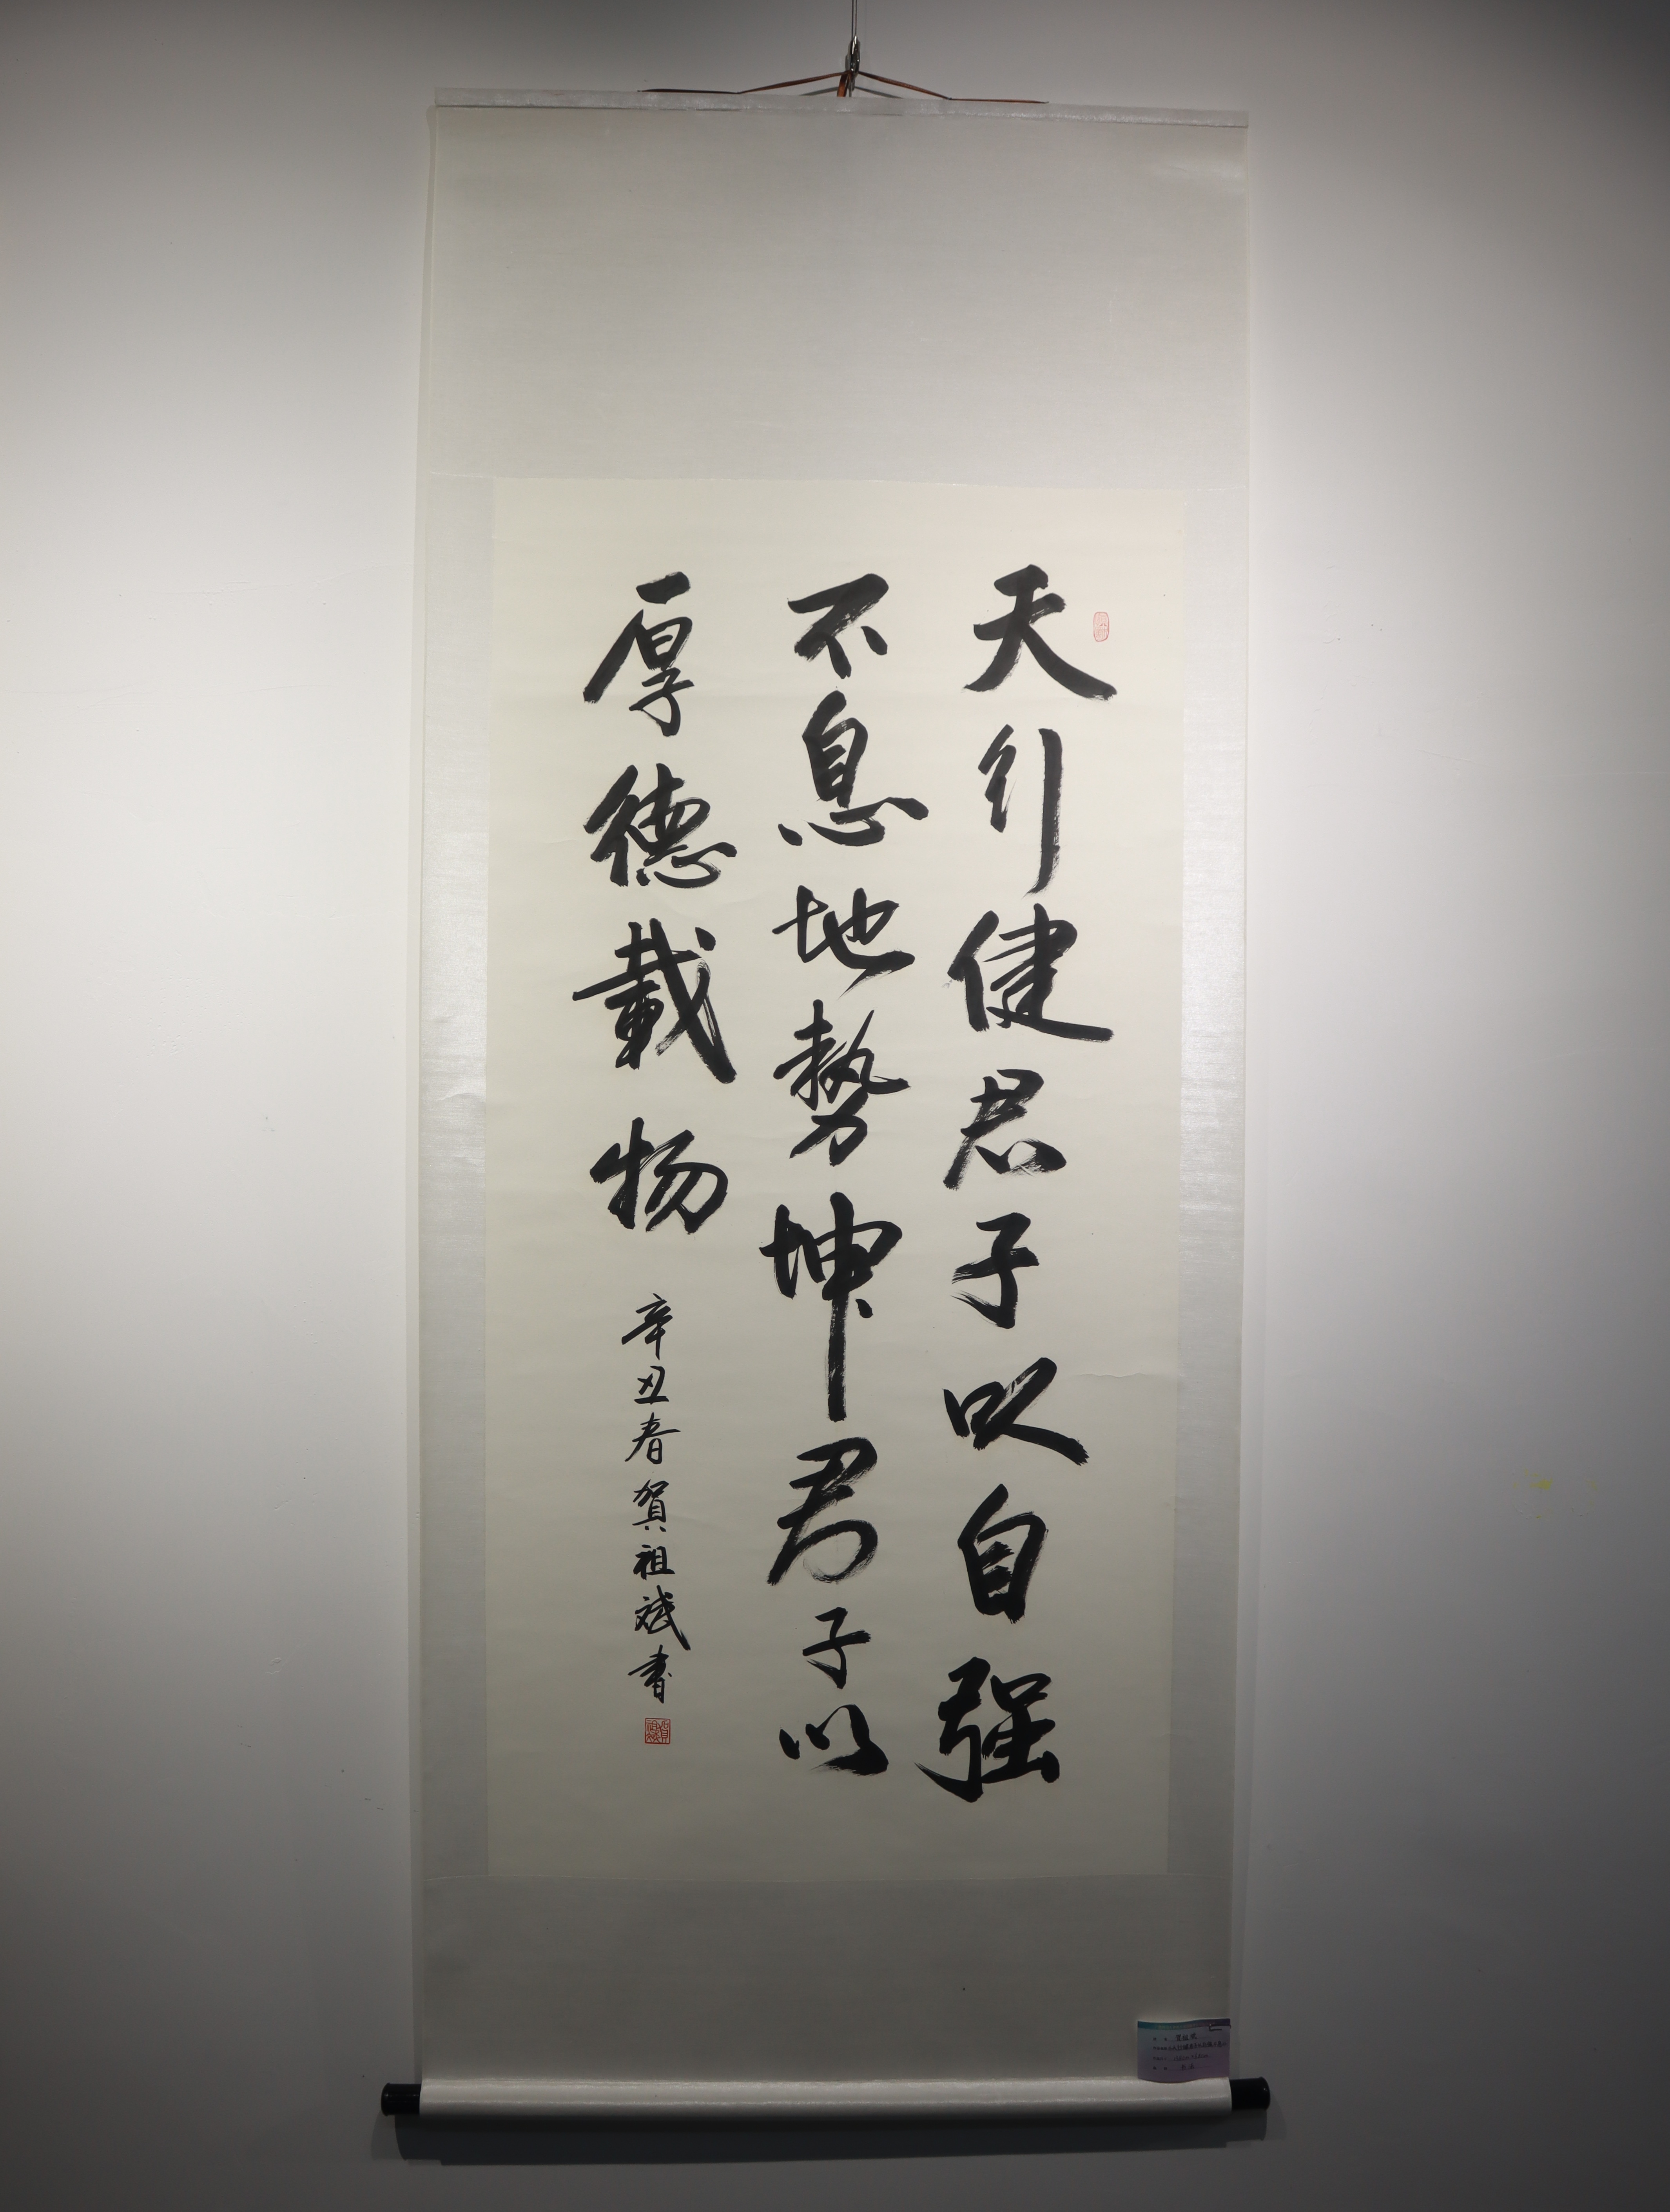 天行健君子以自强
不息地勢坤君子以
厚德載物
辛丑春賀祖斌書